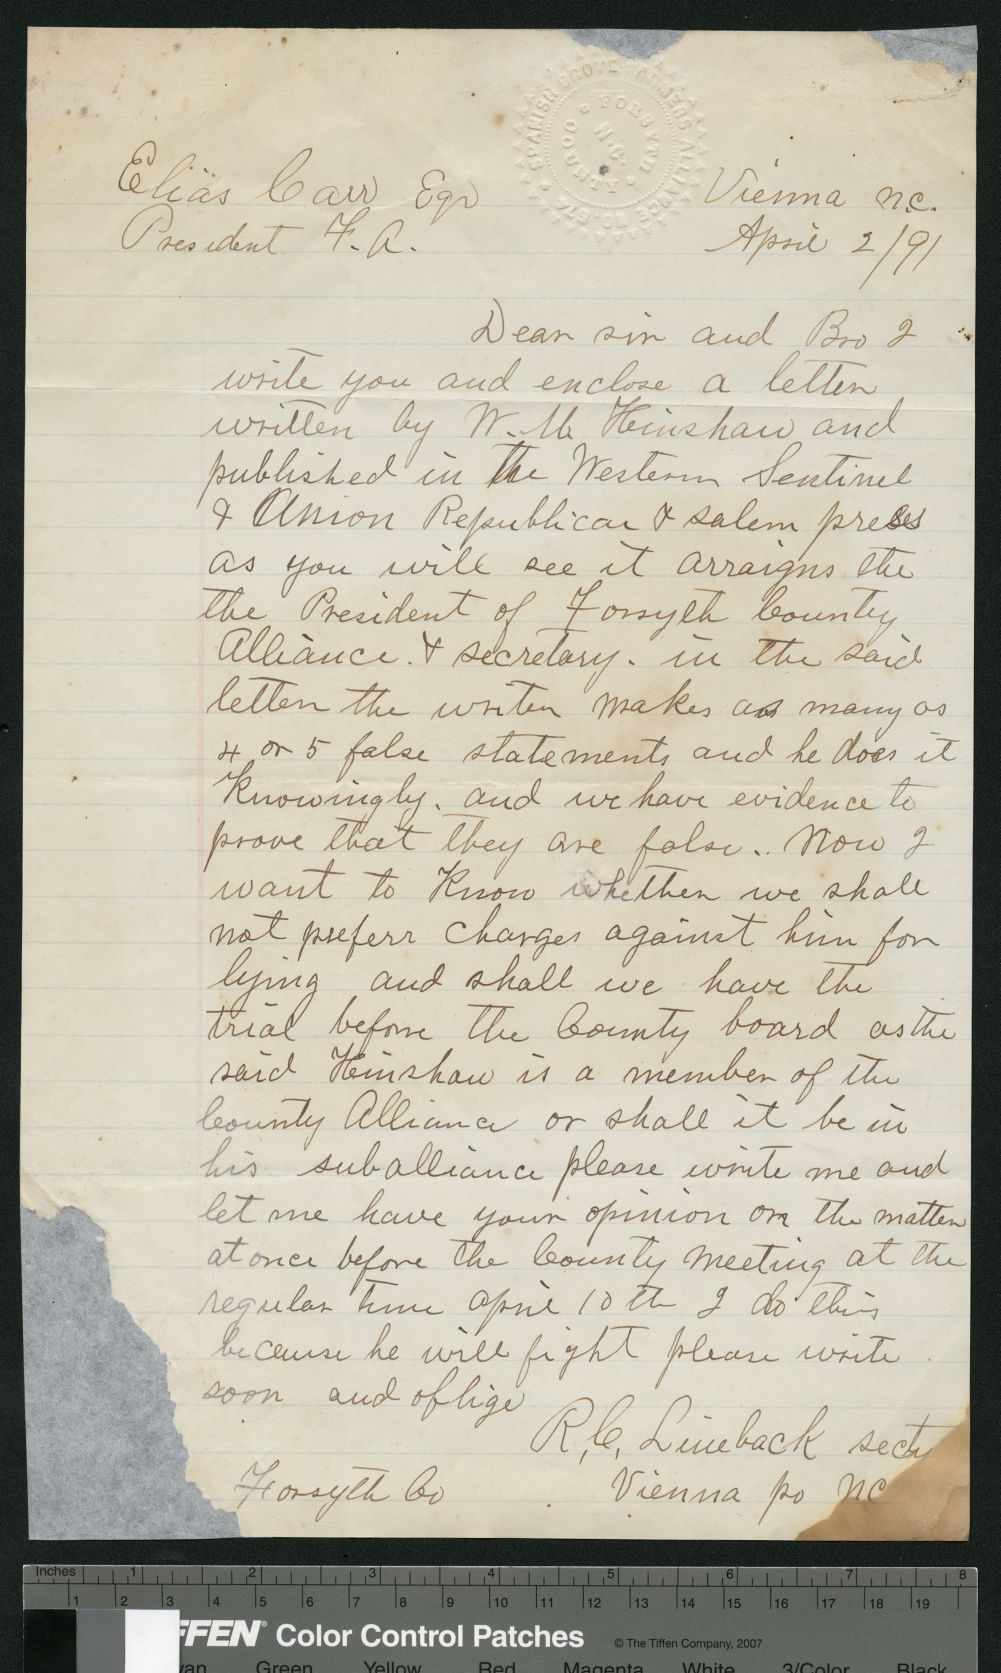 SPANISH GROVE FARMERS ALLIANCE NO. 675
FORSYTH COUNTY N.C.
Elias Carr Eqr
Vienna N.C.
President F. A.
April 2/91
Dear sir and Bro I
write you and enclose a letter
written by W. M. Hinshaw and
published in the Western Sentinel
& Union Republican & Salem presses
as you will see it arraigns the
the President of Forsyth County
Alliance. & secretary. in the said
letter the writer makes as many as
4 or 5 false statements and he does it
Knowingly. and we have evidence to
prove that they are false.. Now I
want to Know whether we shall
not preferr charges against him for
lying and shall we have the
trial before the County board as the
said Hinshaw is a member of the
County Alliance or shall it be in
his suballiance please write me and
let me have your opinion on the matter
at once before the County meeting at the
regular time april 10th I do this
because he will fight please write
soon and oblige
R. C. Lineback secty
Forsyth Co
Vienna po NC
Inches 1 2 3 4 5 6 7 8
1 2 3 4 5 6 7 8 9 10 11 12 13 14 15 16 17 18 19
FFEN® Color Control Patches © The Tiffen Company, 2007
yan Green Yellow Red Magenta White 3/Color Black